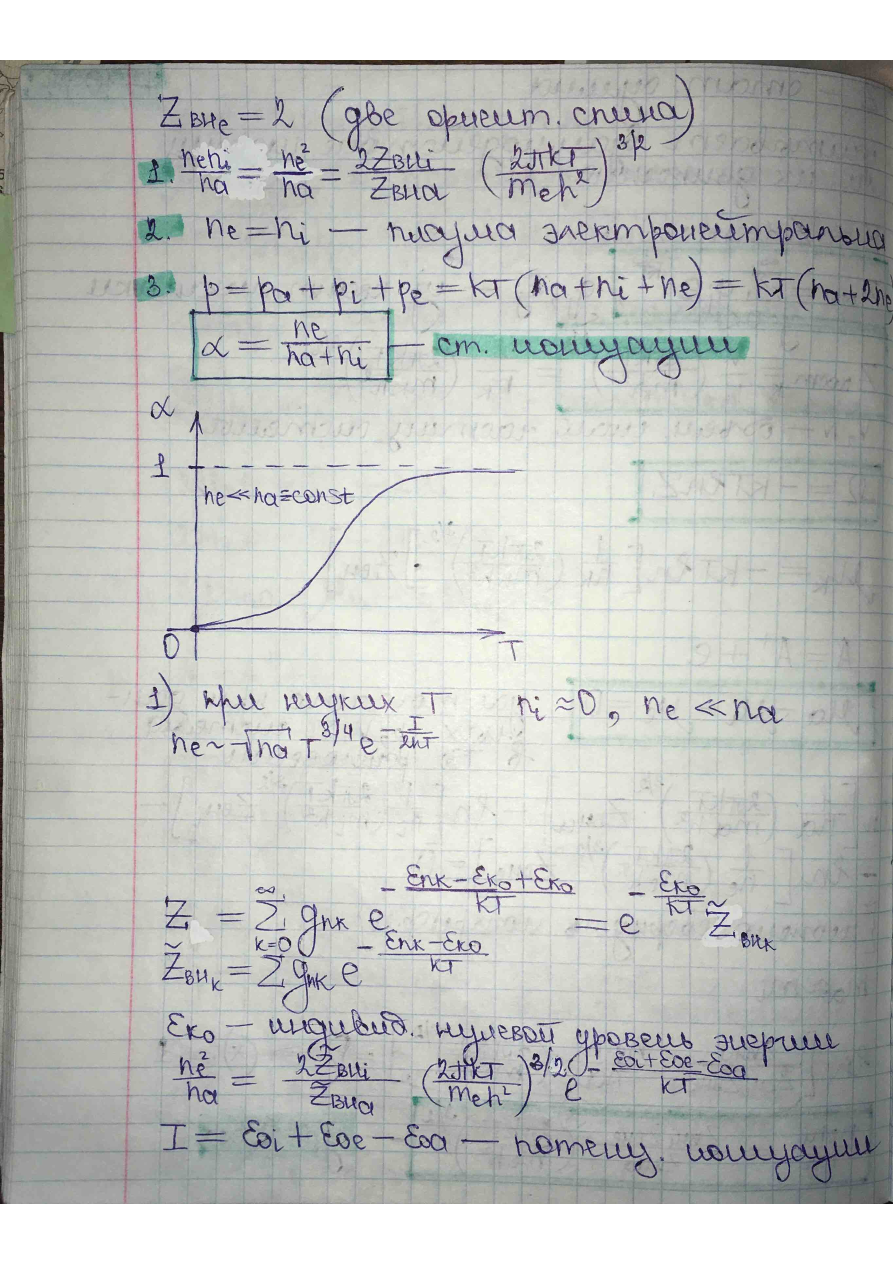 Zвнe = 2 (две ориент. спина)
1. nₑnᵢ/nₐ = nₑ²/nₐ = 2Zвнi/Zвнa (2πkT/mₑh²)^3/2
2. nₑ = nᵢ — плазма электронейтральна
3. p = pₐ + pᵢ + pₑ = kT(nₐ + nᵢ + nₑ) = kT(nₐ + 2nₑ
α = nₑ/(nₐ + nᵢ) — ст. ионизации
α
1
nₑ ≪ nₐ ≡ const
0
T
1) при низких T nᵢ ≈ 0, nₑ ≪ nₐ
nₑ ~ √nₐ T^3/4 e^(-I/2kT)
Z = Σ_(k=0)^∞ gₙₖ e^(-(εₙₖ - εₖ₀ + εₖ₀)/kT) = e^(-εₖ₀/kT) Z̃внк
Z̃внк = Σ gₙₖ e^(-(εₙₖ - εₖ₀)/kT)
εₖ₀ — индивид. нулевой уровень энергии
nₑ²/nₐ = 2Z̃внi/Z̃внa (2πkT/mₑh²)^3/2 e^(-(ε₀ᵢ + ε₀ₑ - ε₀ₐ)/kT)
I = ε₀ᵢ + ε₀ₑ - ε₀ₐ — потенц. ионизации